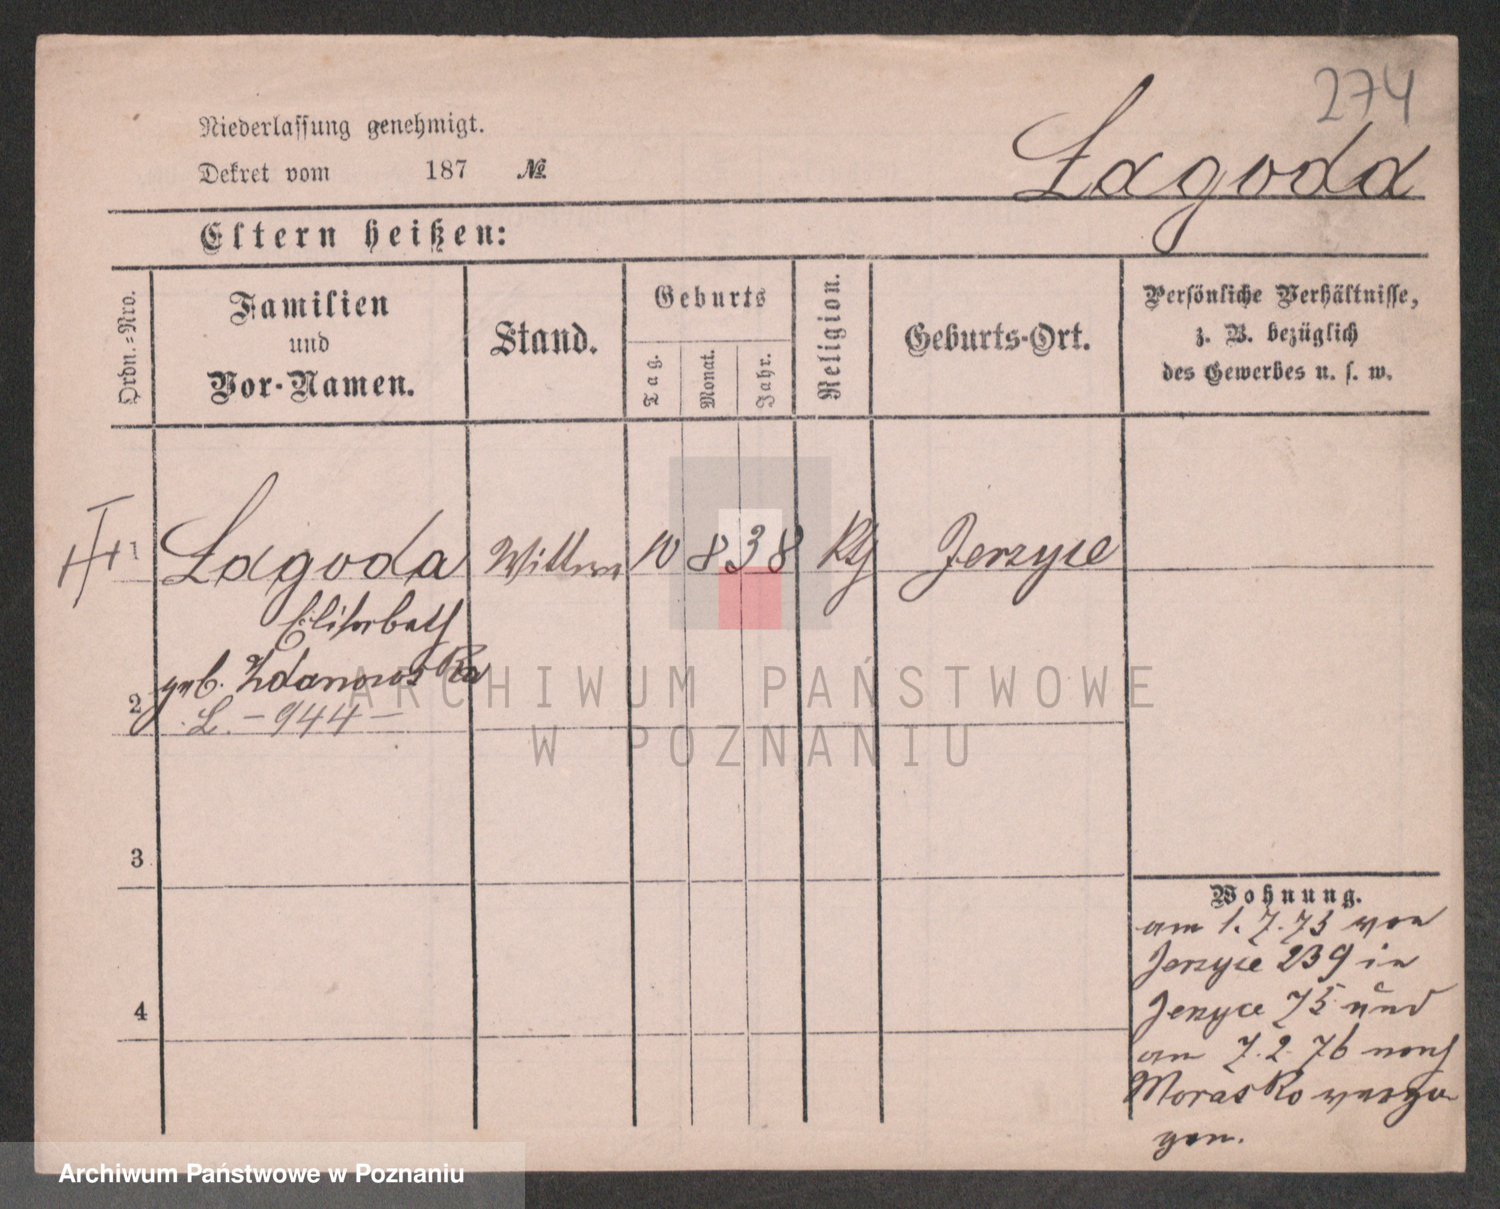 274
Niederlassung genehmigt.
Dekret vom 187 №
Łagoda
Eltern heißen:
Ordn.=Nro.
Familien
und
Vor-Namen.
Stand.
Geburts
Tag.
Monat.
Jahr.
Religion.
Geburts-Ort.
Persönliche Verhältnisse,
z. B. bezüglich
des Gewerbes u. s. w.
1 Łagoda Wittwe 10 8 38 Kth Jerzyce
Elisabeth
geb. Zdanowska
2 L. - 944 -
3
4
Wohnung.
am 1. 7. 75 von
Jerzyce 239 in
Jerzyce 75 und
am 7. 2. 76 nach
Morasko verzo-
gen.
ARCHIWUM PAŃSTWOWE
W POZNANIU
Archiwum Państwowe w Poznaniu